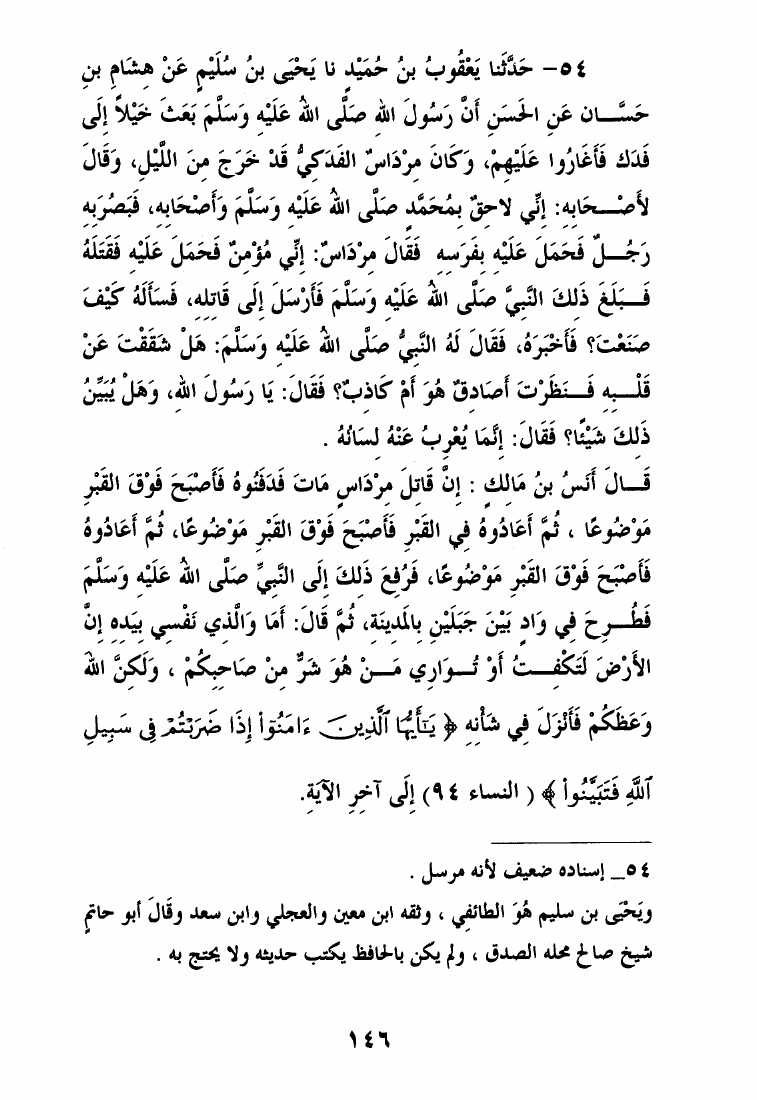 ٥٤- حَدَّثَنا يَعْقُوبُ بنُ حُمَيْدٍ نا يَحْيَى بنُ سُلَيْمٍ عَنْ هِشَامِ بنِ
حَسَّــان عَنِ الحَسَنِ أَنَّ رَسُولَ اللهِ صَلَّى اللهُ عَلَيْهِ وَسَلَّمَ بَعَثَ خَيْلاً إِلَى
فَدَك فَأَغَارُوا عَلَيْهِمْ، وَكَانَ مِرْدَاسٌ الفَدَكِيُّ قَدْ خَرَجَ مِنَ اللَّيْلِ، وَقَالَ
لأَصْــحَابِهِ: إِنِّي لاحِقٌ بِمُحَمَّدٍ صَلَّى اللهُ عَلَيْهِ وَسَلَّمَ وَأَصْحَابِهِ، فَبَصُرَبِهِ
رَجُــلٌ فَحَمَلَ عَلَيْهِ بِفَرَسِهِ فَقَالَ مِرْدَاسٌ: إِنِّي مُؤْمِنٌ فَحَمَلَ عَلَيْهِ فَقَتَلَهُ
فَــبَلَغَ ذَلِكَ النَّبِيَّ صَلَّى اللهُ عَلَيْهِ وَسَلَّمَ فَأَرْسَلَ إِلَى قَاتِلِهِ، فَسَأَلَهُ كَيْفَ
صَنَعْتَ؟ فَأَخْبَرَهُ، فَقَالَ لَهُ النَّبِيُّ صَلَّى اللهُ عَلَيْهِ وَسَلَّمَ: هَلْ شَقَقْتَ عَنْ
قَلْــبِهِ فَــنَظَرْتَ أَصَادِقٌ هُوَ أَمْ كَاذِبٌ؟ فَقَالَ: يَا رَسُولَ اللهِ، وَهَلْ يُبَيِّنُ
ذَلِكَ شَيْئًا؟ فَقَالَ: إِنَّمَا يُعْرِبُ عَنْهُ لِسَانُهُ .
قَــالَ أَنَسُ بنُ مَالِكٍ : إِنَّ قَاتِلَ مِرْدَاسٍ مَاتَ فَدَفَنُوهُ فَأَصْبَحَ فَوْقَ القَبْرِ
مَوْضُوعًا ، ثُمَّ أَعَادُوهُ فِي القَبْرِ فَأَصْبَحَ فَوْقَ القَبْرِ مَوْضُوعًا، ثُمَّ أَعَادُوهُ
فَأَصْبَحَ فَوْقَ القَبْرِ مَوْضُوعًا، فَرُفِعَ ذَلِكَ إِلَى النَّبِيِّ صَلَّى اللهُ عَلَيْهِ وَسَلَّمَ
فَطُــرِحَ فِي وَادٍ بَيْنَ جَبَلَيْنِ بِالمَدِينَةِ، ثُمَّ قَالَ: أَمَا وَالَّذِي نَفْسِي بِيَدِهِ إِنَّ
الأَرْضَ لَتَكْفِــتُ أَوْ تُــوَارِي مَــنْ هُوَ شَرٌّ مِنْ صَاحِبِكُمْ ، وَلَكِنَّ اللهَ
وَعَظَكُمْ فَأَنْزَلَ فِي شَأْنِهِ ﴿ يَـٰٓأَيُّهَا ٱلَّذِينَ ءَامَنُوٓا۟ إِذَا ضَرَبْتُمْ فِى سَبِيلِ
ٱللَّهِ فَتَبَيَّنُوا۟ ﴾ ( النساء ٩٤) إِلَى آخِرِ الآيَةِ.
٥٤_ إسناده ضعيف لأنه مرسل .
ويَحْيَى بن سليم هُوَ الطائفي ، وثقه ابن معين والعجلي وابن سعد وقَالَ أبو حاتمٍ
شيخ صالح محله الصدق ، ولم يكن بالحافظ يكتب حديثه ولا يحتج به .
١٤٦